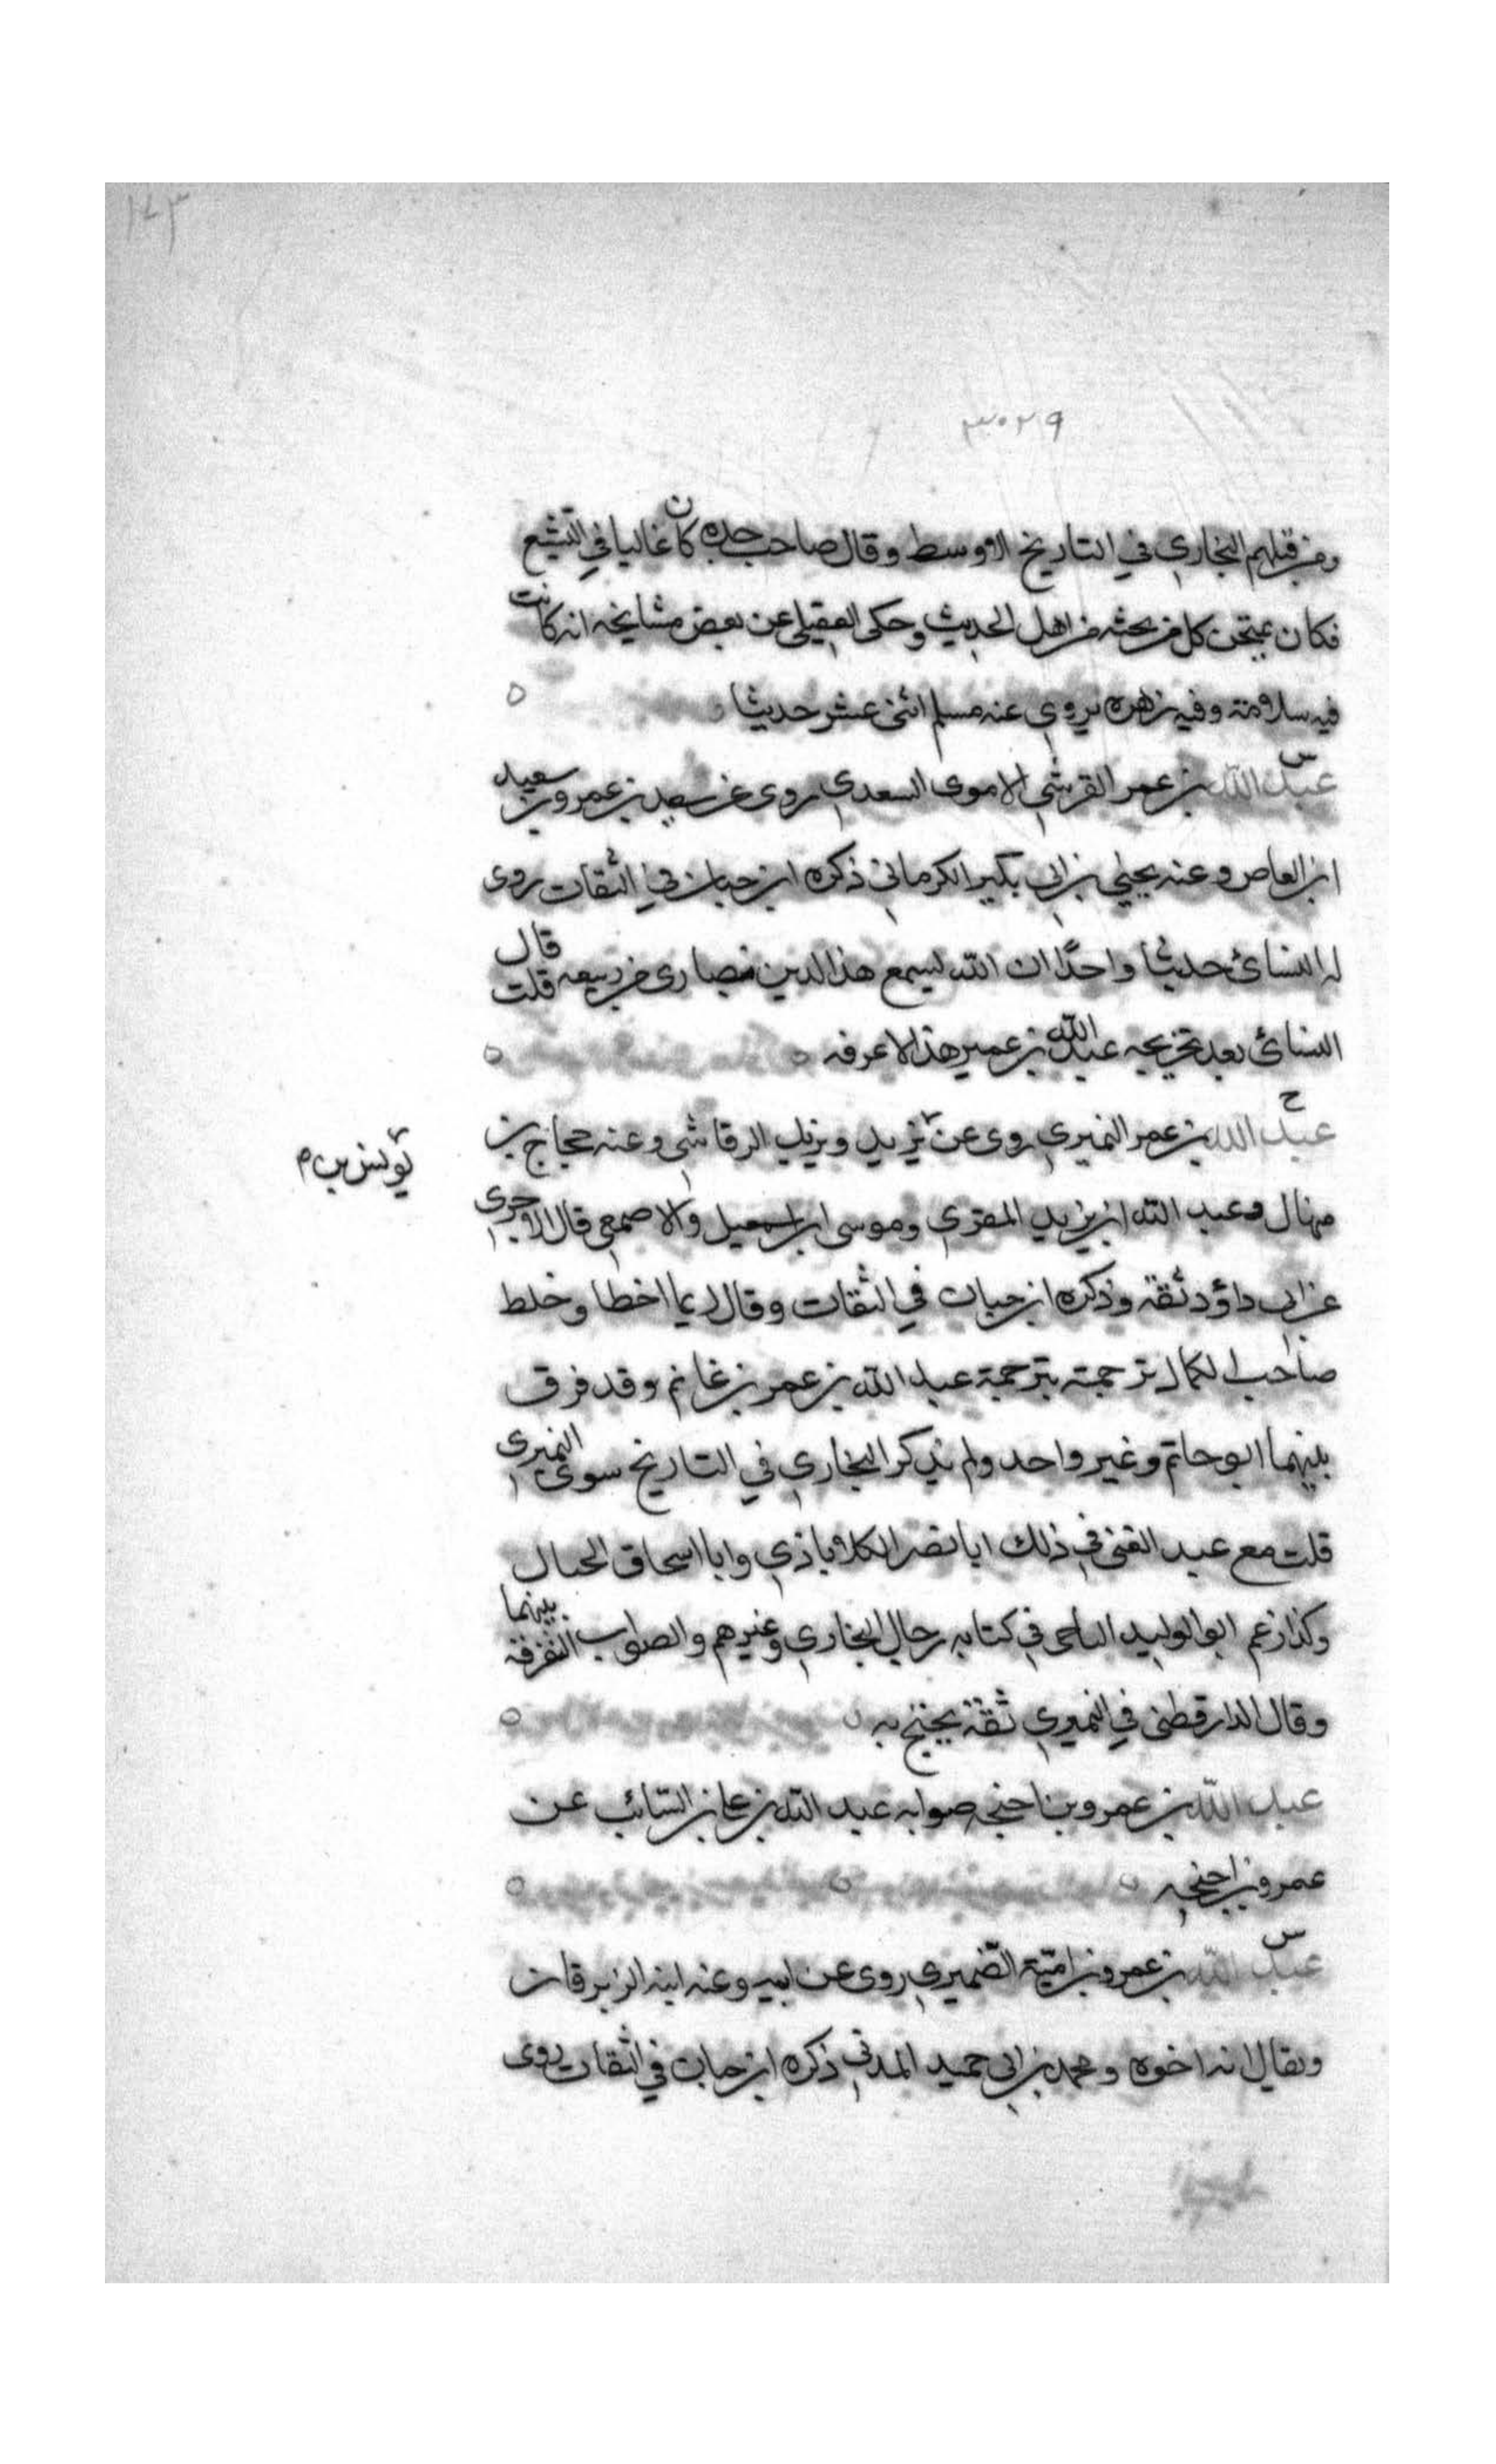 ١٧٣
٣٠٢٩
ومن قبلهم البخاري في التاريخ الاوسط وقال صاحب جده كان غاليا في التشيع
فكان يمتحن كل من يحثه من اهل الحديث وحكى العقيلي عن بعض مشايخه انه كانت
فيه سلامة وفيه زهره يروي عنه مسلم اثنى عشر حديثا
س
عبد الله بن عمر القرشي الاموي السعدي روى عن سعيد بن عمرو بن سعيد
ابن العاص وعنه يحيى بن ابي بكير الكرماني ذكره ابن حبان في الثقات روى
له النسائ حديثا واحدًا ان الله ليسمع هذا الدين نصارى من ربيعه قلت قال
النسائ بعد تخريجه عبد الله بن عمير هذا لا اعرفه
ح
عبد الله بن عمر النميري روى عن يزيد ويزيد الرقاشي وعنه حجاج بن
يونس بن م
منهال وعبد الله ابن يزيد المقري وموسى ابن اسمعيل والاصمعي قال الاجري
عن ابي داؤد ثقة وذكره ابن حبان في الثقات وقال ربما اخطا وخلط
صاحب الكمال ترجمته بترجمة عبد الله بن عمر بن غانم وقد فرق
بينهما ابو حاتم وغير واحد ولم يذكر البخاري في التاريخ سوى النميري
قلت مع عبد الغني في ذلك ابا نصر الكلاباذي وابا اسحاق الحبال
وكذا زعم ابو الوليد الباجي في كتابه رجال البخاري وغيرهم والصواب التفرقة بينهما
وقال الدارقطني في النميري ثقة يحتج به
عبد الله بن عمرو بن احنجه صوابه عبد الله بن علي بن السائب عن
عمرو بن احنجه
س
عبد الله بن عمرو بن امية الضميري روى عن ابيه وعنه ابنه الزبرقان
ويقال انه اخوه ومحمد بن ابي حميد المدني ذكره ابن حبان في الثقات روى